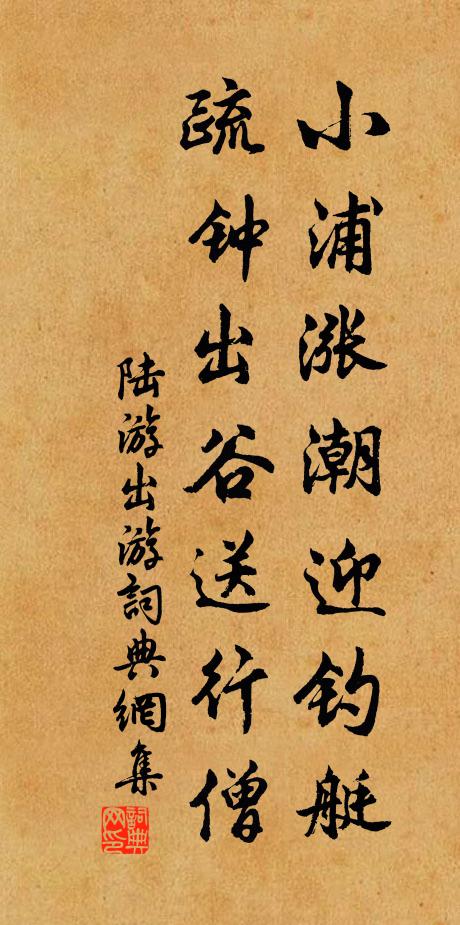 小浦涨潮迎钓艇
疏钟出谷送行僧
陆游出游詞典網集
詞典网印